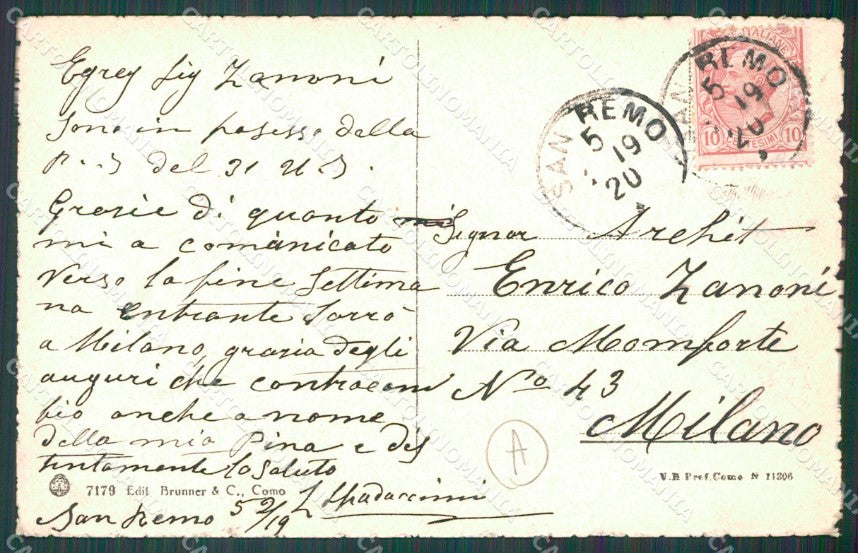 Egreg Sig Zanoni
Sono in possesso della
del 31 u s.
Grazie di quanto
mi a comunicato
verso la fine settima
na entrante sarrò
a Milano, grazia degli
auguri che contracam
bio anche a nome
della mia Pina e dis
tintamente la saluto
L Spadaccini
San Remo 5 2/19
7179 Edit Brunner & C., Como
SAN REMO
5
19
20
SAN REMO
5
19
20
D'ITALIA
10 10
Signor Archit
Enrico Zanoni
Via Momforte
No 43
Milano
A
V.B Pref. Como N 11206
CARTOLINOMANIA